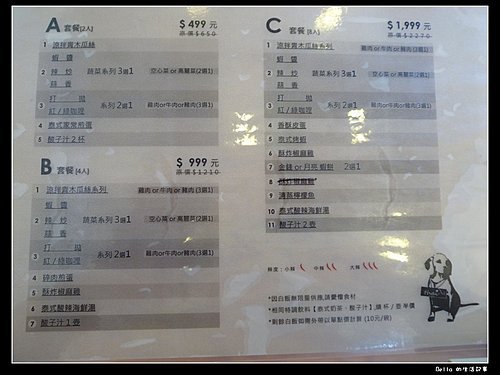 A 套餐[2人] $ 499 元
原價$650
1 涼拌青木瓜絲
蝦 醬
2 辣 炒 蔬菜系列 3選1 空心菜 or 高麗菜(2選1)
蒜 香
3 打 拋 系列 2選1 雞肉or牛肉or豬肉(3選1)
紅 / 綠咖哩
4 泰式家常煎蛋
5 酸子汁 2 杯
B 套餐 [4人] $ 999 元
原價$1210
1 涼拌青木瓜絲系列 雞肉 or 牛肉 or 豬肉(3選1)
蝦 醬
2 辣 炒 蔬菜系列 3選1 空心菜 or 高麗菜(2選1)
蒜 香
3 打 拋 系列 2選1 雞肉or牛肉or豬肉(3選1)
紅 / 綠咖哩
4 碎肉煎蛋
5 酥炸椒麻雞
6 泰式酸辣海鮮湯
7 酸子汁 1 壺
C 套餐 [8人] $ 1,999 元
原價$2270
1 涼拌青木瓜絲系列 雞肉 or 牛肉 or 豬肉(3選1)
蝦 醬
2 辣 炒 蔬菜系列 3選1 空心菜 or 高麗菜(2選1)
蒜 香
3 打 拋 系列 2選1 雞肉or牛肉or豬肉(3選1)
紅 / 綠咖哩
4 香酥皮蛋
5 泰式烤蝦
6 酥炸椒麻雞
7 金錢 or 月亮 蝦餅 2選1
8
9 清蒸檸檬魚
10 泰式酸辣海鮮湯
11 酸子汁 2 壺
辣度：小辣 中辣 大辣
*因白飯無限量供應,請愛惜食材
*相同特調飲料【泰式奶茶、酸子汁】續 杯 / 壺 半價
*剩餘白飯如需外帶以單點價計算 (10元/碗)
Bella 的生活記事